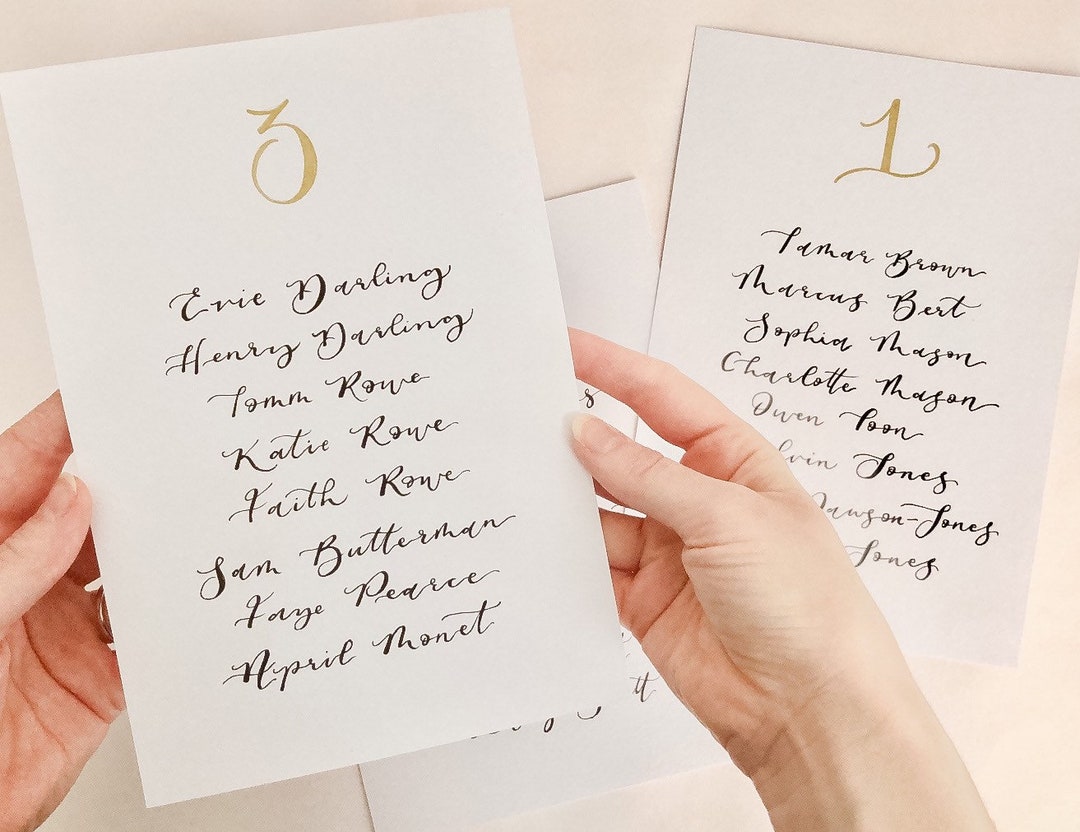 3
Evie Darling
Henry Darling
Tomm Rowe
Katie Rowe
Faith Rowe
Sam Butterman
Faye Pearce
April Monet
1
Tamar Brown
Marcus Bert
Sophia Mason
Charlotte Mason
Owen Toon
Jones
Dawson-Jones
Jones